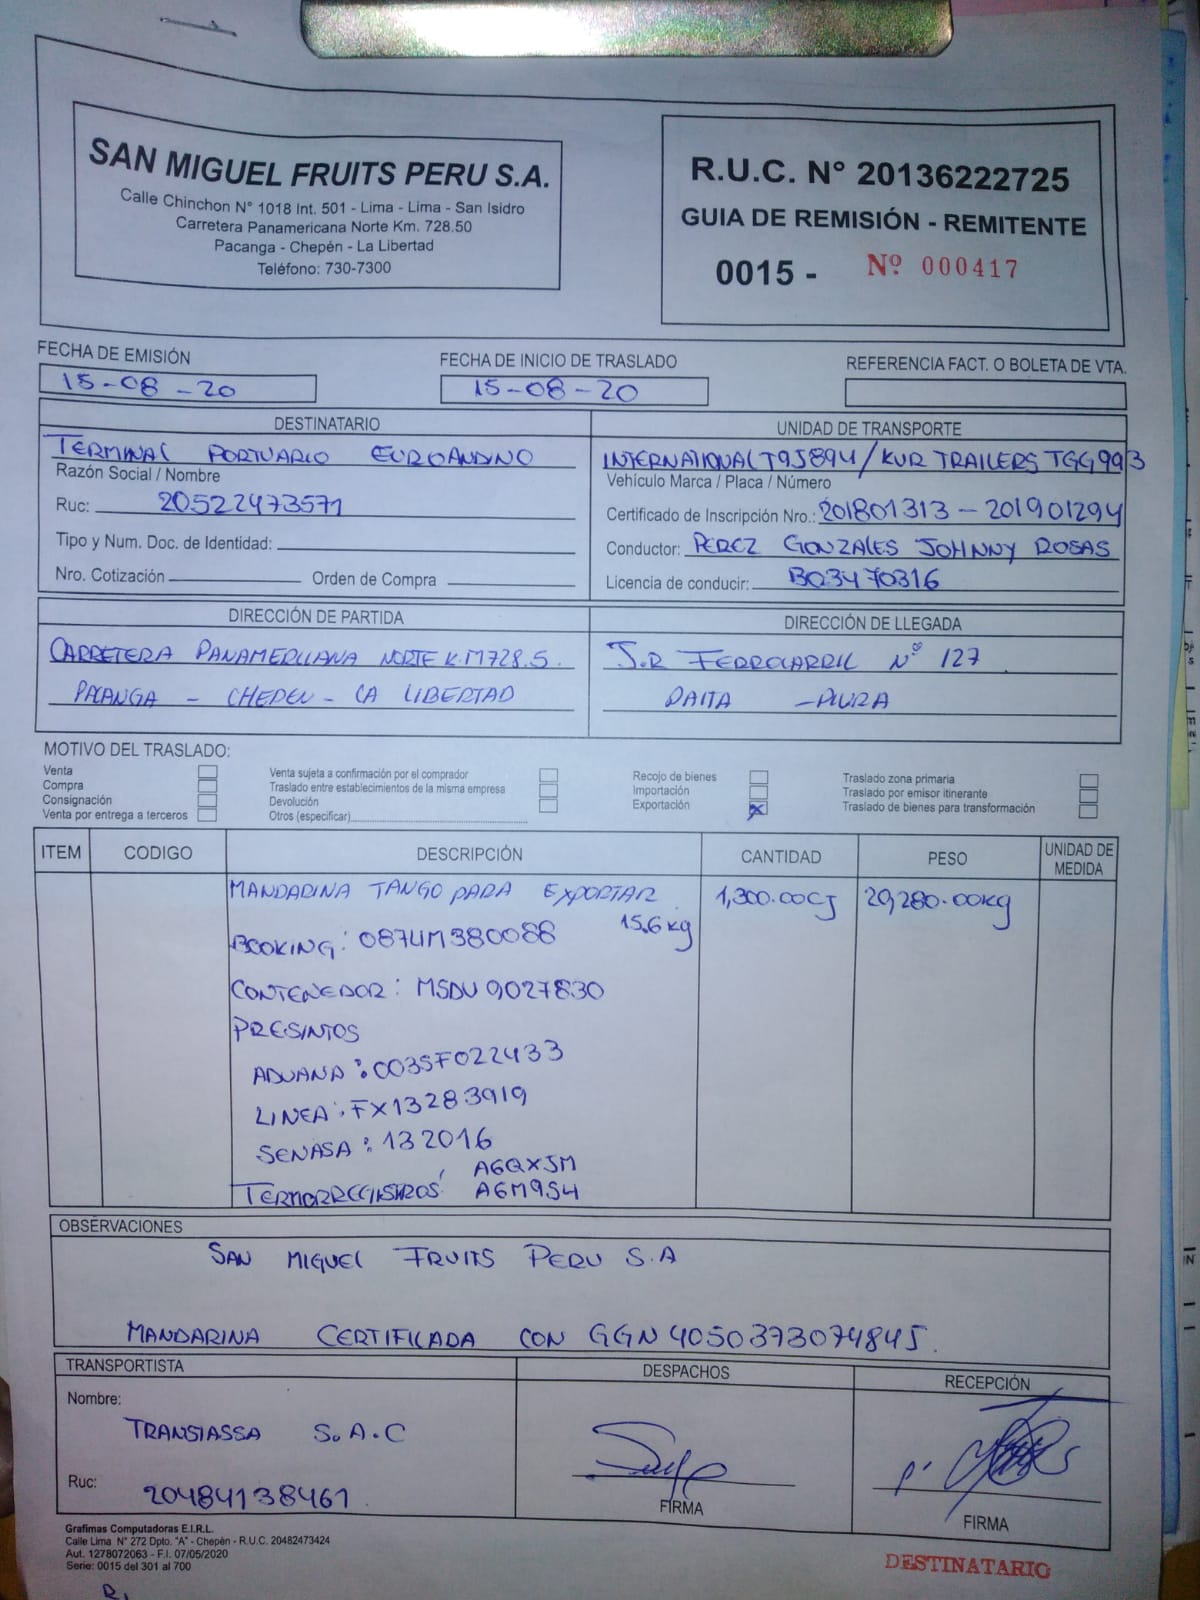 SAN MIGUEL FRUITS PERU S.A.
Calle Chinchon N° 1018 Int. 501 - Lima - Lima - San Isidro
Carretera Panamericana Norte Km. 728.50
Pacanga - Chepén - La Libertad
Teléfono: 730-7300
R.U.C. N° 20136222725
GUIA DE REMISIÓN - REMITENTE
0015 - Nº 000417
FECHA DE EMISIÓN
15-08-20
FECHA DE INICIO DE TRASLADO
15-08-20
REFERENCIA FACT. O BOLETA DE VTA.
DESTINATARIO
TERMINAL PORTUARIO EUROANDINO
Razón Social / Nombre
Ruc: 20522473571
Tipo y Num. Doc. de Identidad:
Nro. Cotización Orden de Compra
UNIDAD DE TRANSPORTE
INTERNATIONAL T9J894 / KUR TRAILERS TGG993
Vehículo Marca / Placa / Número
Certificado de Inscripción Nro.: 201801313 - 201901294
Conductor: PEREZ GONZALES JOHNNY ROSAS
Licencia de conducir: B03470316
DIRECCIÓN DE PARTIDA
CARRETERA PANAMERICANA NORTE K.M 728.5.
PACANGA - CHEPEN - LA LIBERTAD
DIRECCIÓN DE LLEGADA
J.R FERROCARRIL N° 127
PAITA - PIURA
MOTIVO DEL TRASLADO:
Venta
Compra
Consignación
Venta por entrega a terceros
Venta sujeta a confirmación por el comprador
Traslado entre establecimientos de la misma empresa
Devolución
Otros (especificar)
Recojo de bienes
Importación
Exportación X
Traslado zona primaria
Traslado por emisor itinerante
Traslado de bienes para transformación
ITEM CODIGO DESCRIPCIÓN CANTIDAD PESO UNIDAD DE MEDIDA
MANDARINA TANGO PARA EXPORTAR 1,300.00CJ 20,280.00Kg
15.6 kg
BOOKING: 087UM380088
CONTENEDOR: MSDU 9027830
PRESINTOS
ADUANA: 003SF022433
LINEA: FX13283919
SENASA: 132016
A6QXJM
TERMORREGISTROS: A6M9S4
OBSERVACIONES
SAN MIGUEL FRUITS PERU S.A
MANDARINA CERTIFICADA CON GGN 4050373074845.
TRANSPORTISTA
Nombre:
TRANSIASSA S.A.C
Ruc: 20484138461
DESPACHOS
FIRMA
RECEPCIÓN
FIRMA
Grafimas Computadoras E.I.R.L.
Calle Lima N° 272 Dpto. "A" - Chepén - R.U.C. 20482473424
Aut. 1278072063 - F.I. 07/05/2020
Serie: 0015 del 301 al 700
DESTINATARIO